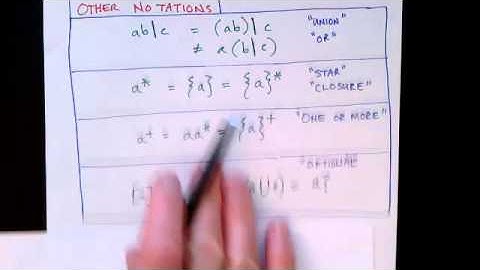 OTHER NOTATIONS
ab|c = (ab)|c "UNION"
≠ a(b|c) "OR"
a* = {a} = {a}* "STAR"
"CLOSURE"
a+ = aa* = {a}+ "ONE OR MORE"
"OPTIONAL"